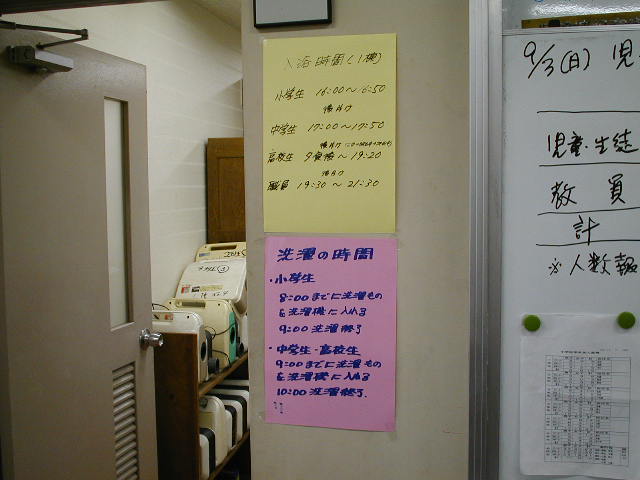 入浴時間(1棟)
小学生 16:00～16:50
後片付
中学生 17:00～17:50
高校生 夕食後～19:20
職員 19:30～21:30
洗濯の時間
・小学生
8:00までに洗濯もの
を洗濯機に入れる
9:00 洗濯終了
・中学生・高校生
9:00までに洗濯もの
を洗濯機に入れる
10:00 洗濯終了.
9/3(日) 児
児童・生徒
教員
計
※人数報